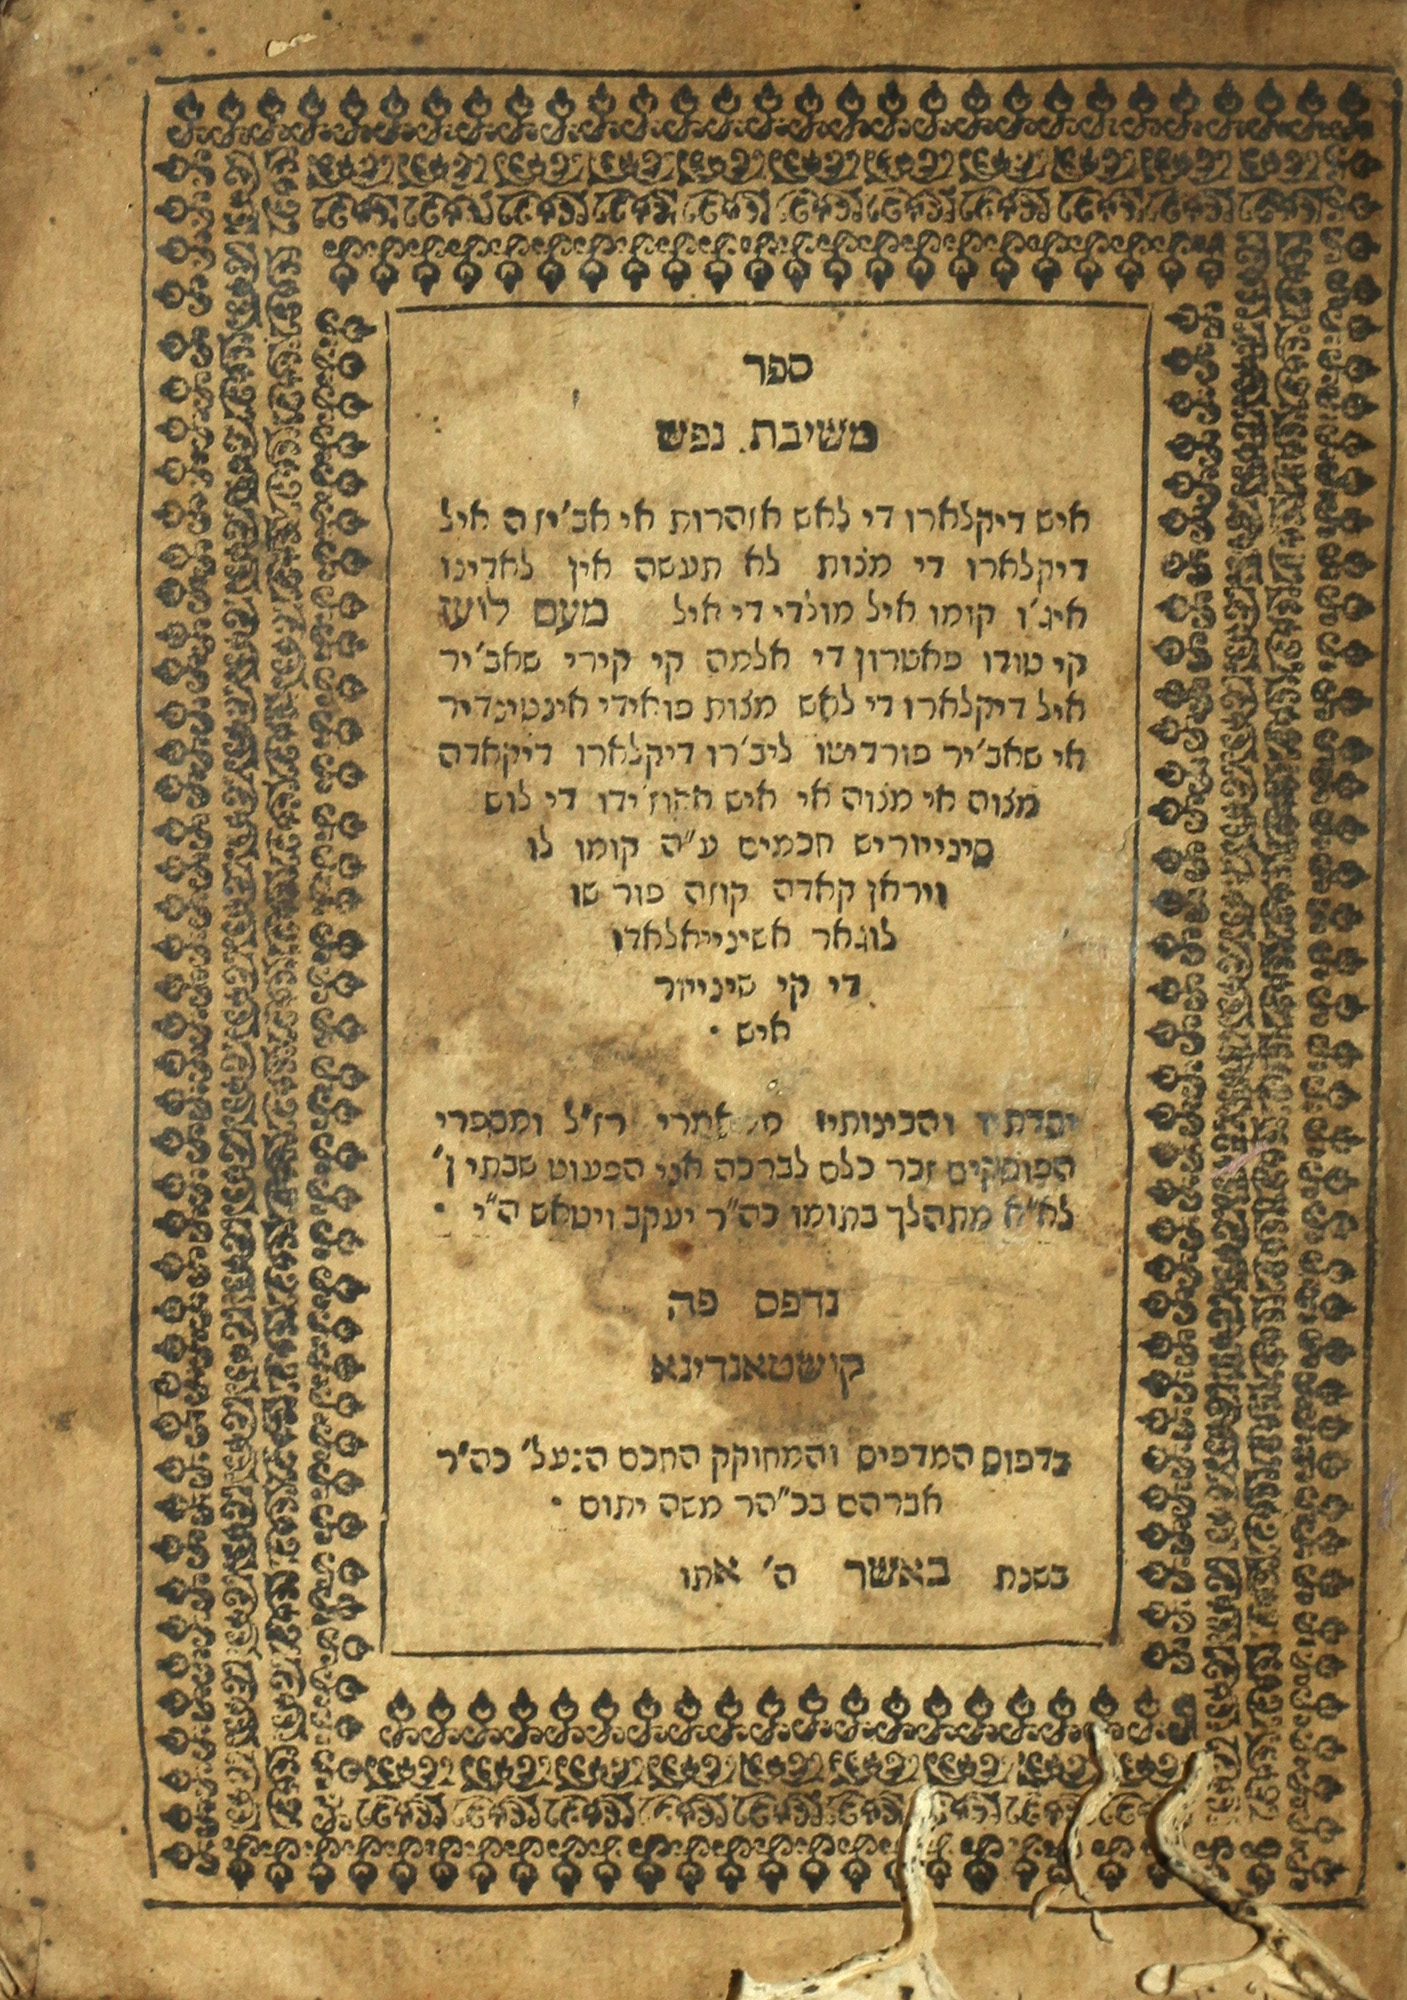 ספר
משיבת נפש
איש דיקלארו די לאש אזהרות אי אב׳יזה איל
דיקלארו די מצות לא תעשה אין לאדינו
איג׳ו קומו איל מולדי די איל מעם לועז
קי טודו פאטרון די אלמה קי קירי שאב׳יר
איל דיקלארו די לאש מצות פואידי אינטינדיר
אי שאב׳יר פורדיטו ליב׳רו דיקלארו דיקאדה
מצוה אי מצוה אי איש די לוש
סינייוריש חכמים ע״ה קומו לו
ויראן קאדה קוזה פור שו
לוגאר אשינייאלאדו
די קי שינייור
איש
והכינותיו רז״ל ומספרי
הפוסקים זכר כלם לברכה אני הפעוט שבתי ן׳
לא״א מתהלך בתומו כה״ר יעקב ויטאש ה״י
נדפס פה
קושטאנדינא
בדפוס המדפיס והמחוקק החכם הנעל׳ כה״ר
אברהם בכ״הר משה יתום
בשנת באשר ה׳ אתו